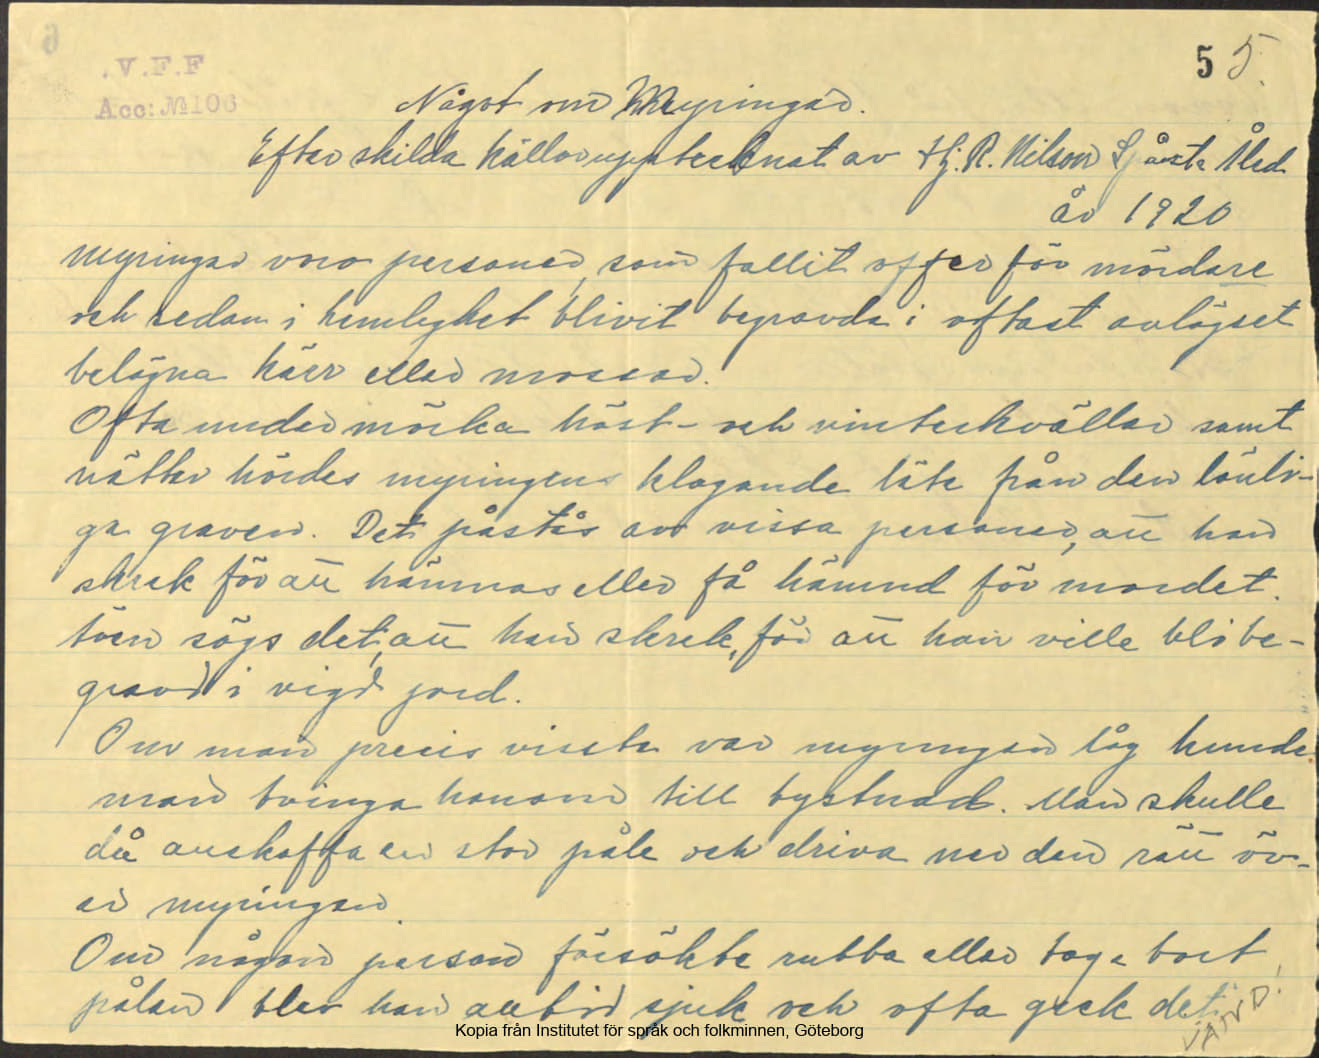 5 5.
V.F.F
Acc: № 106
Något om Myringar.
Efter skilda källor upptecknat av Hj. R. Nilson Åled
år 1920
Myringar voro personer, som fallit offer för mördare
och sedan i hemlighet blivit begravda i oftast avlägset
belägna kärr eller mossar.
Ofta under mörka höst- och vinterkvällar samt
nätter hördes myringens klagande läte från den lönli-
ga graven. Det påstås av vissa personer, att han
skrek för att hämnas eller få hämnd för mordet.
även sägs det, att han skrek, för att han ville bli be-
gravd i vigd jord.
Om man precis visste var myringen låg kunde
man tvinga honom till tystnad. Man skulle
då anskaffa en stor påle och driva ner den rätt öv-
er myringen.
Om någon person försökte rubba eller taga bort
pålen blev han alltid sjuk och ofta gick det
VÄND!
Kopia från Institutet för språk och folkminnen, Göteborg